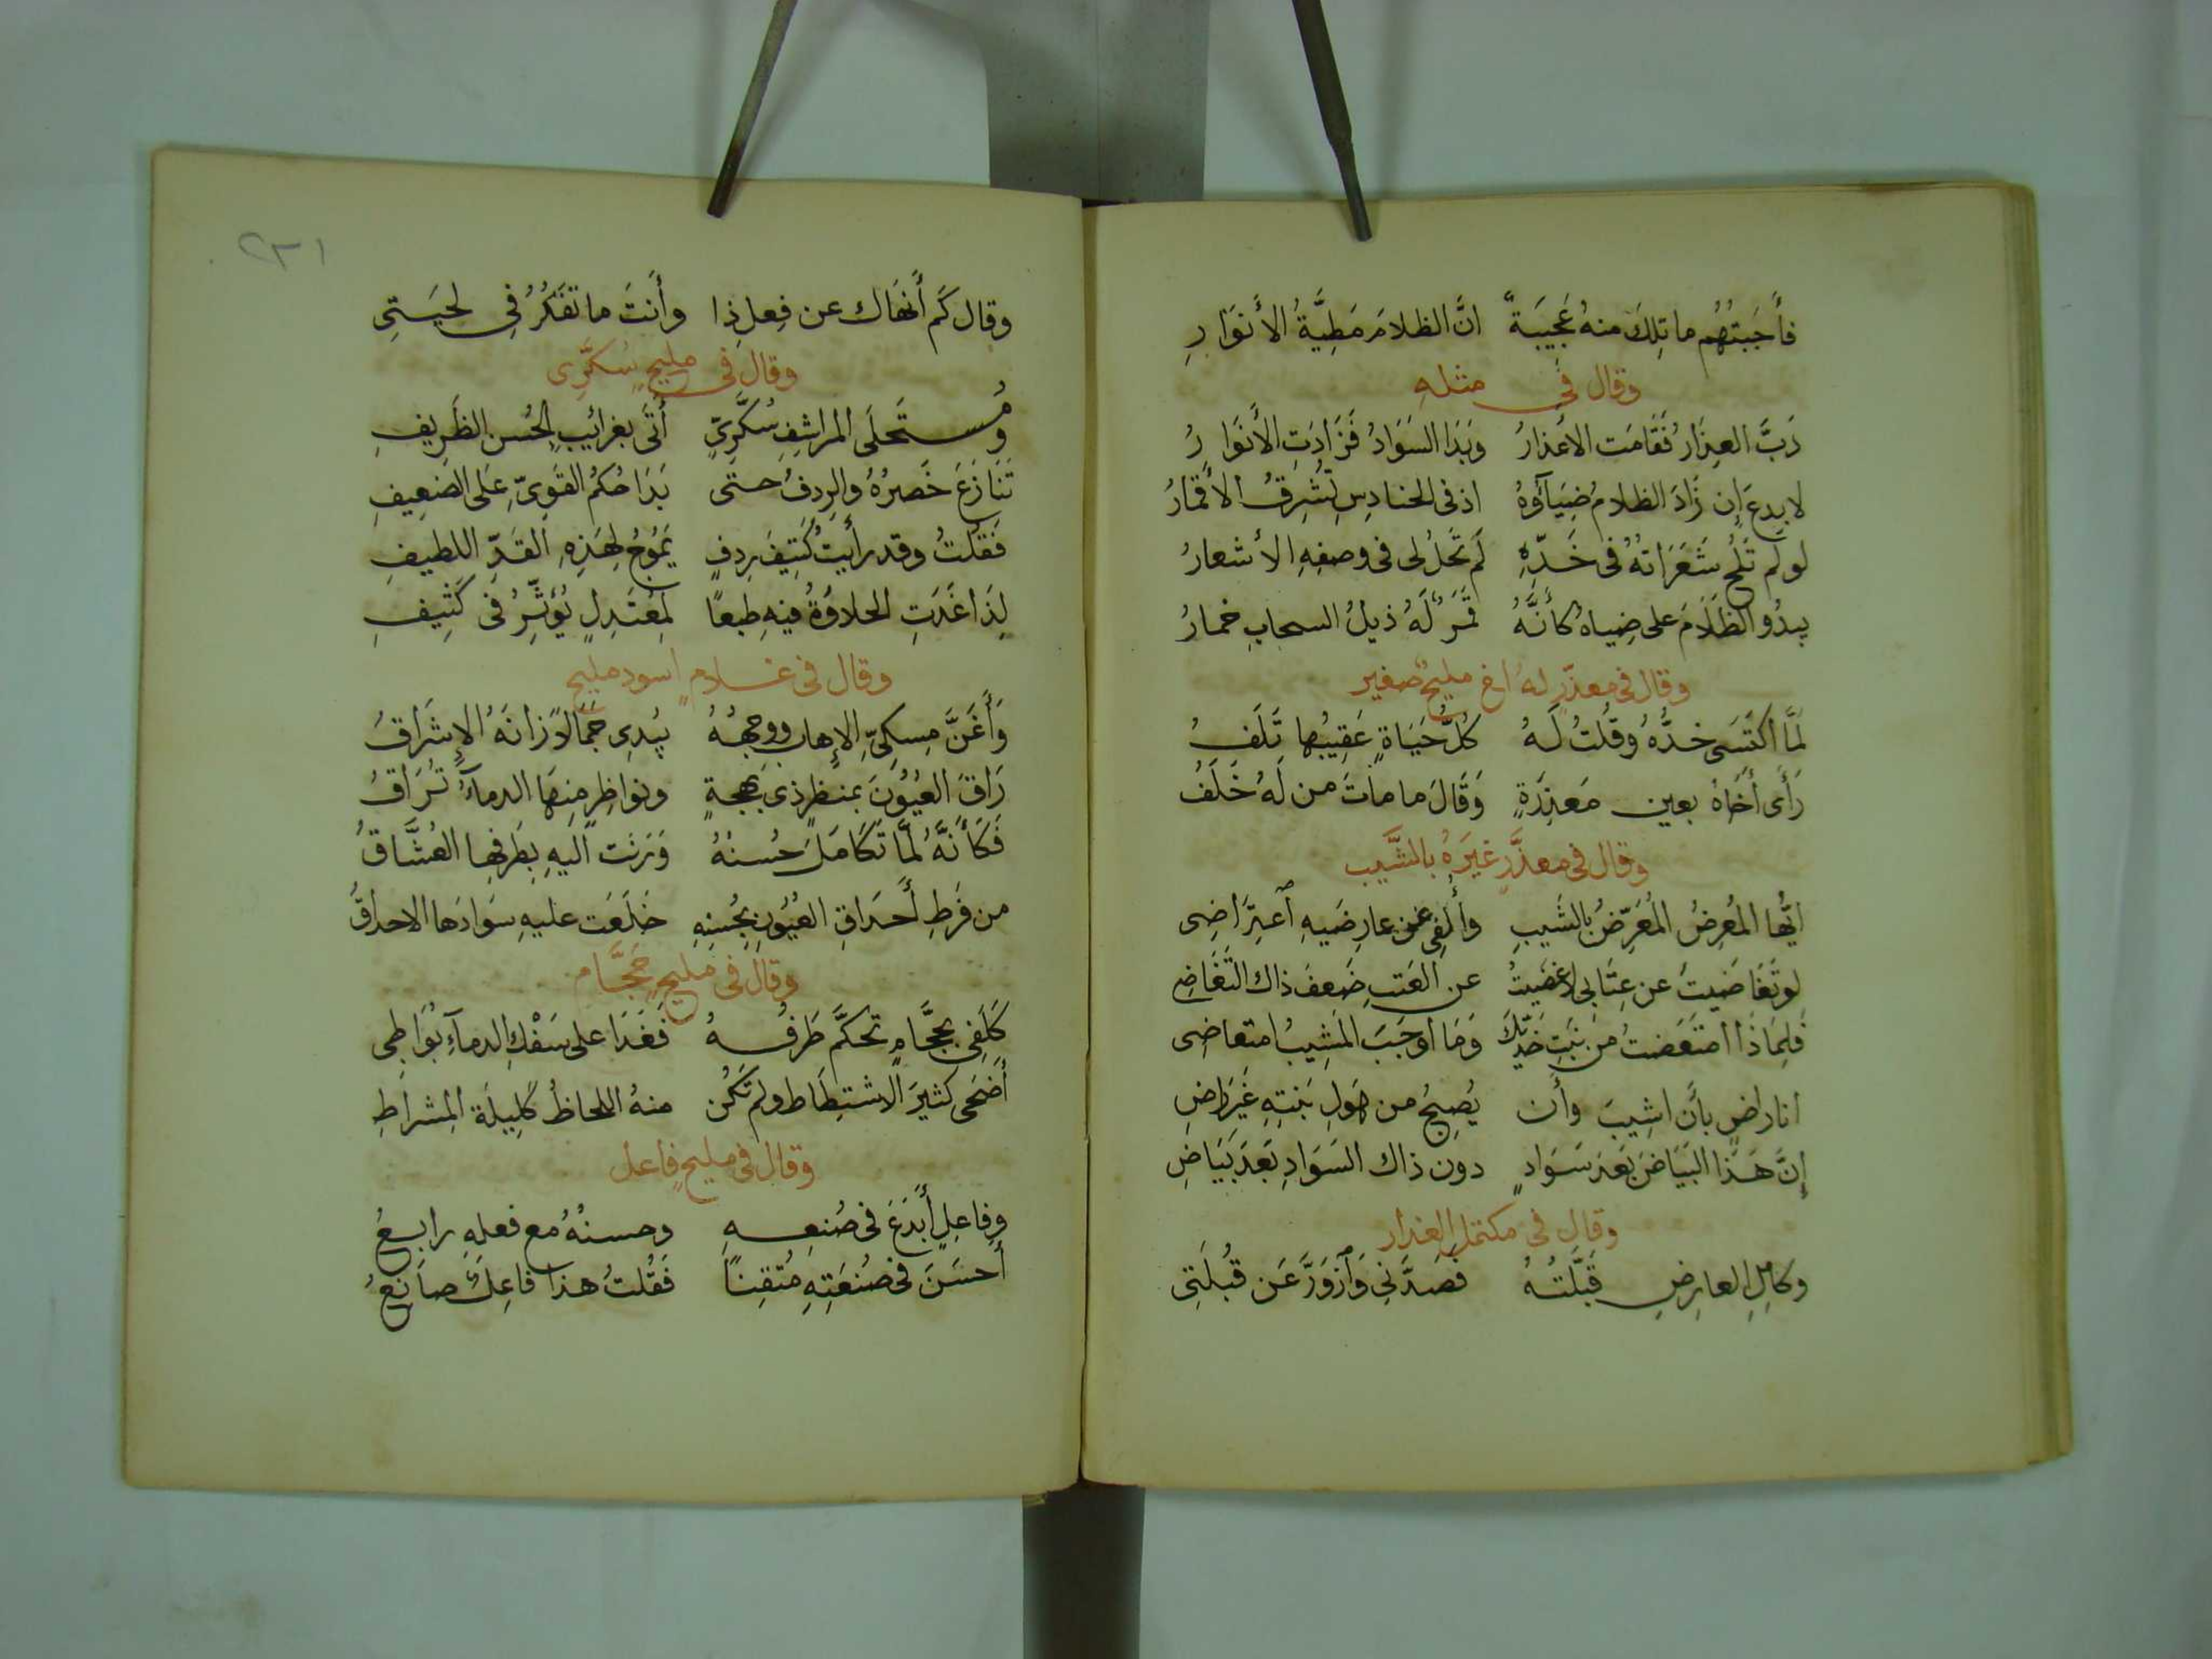 فأَجَبتُهُم ما تِلكَ منهُ عَجِيبَةً انَّ الظلامَ مَطِيَّةُ الأَنوَارِ
وقال في مثله
دَبَّ العِذَارُ فَقَامَت الاعذارُ وَبَدَا السَوَادُ فَزَادَتِ الأنوَارُ
لا بِدعَ إن زَادَ الظلامُ ضِيَآؤُهُ اذ فى الحنادِسِ تُشرِقُ الأَقمَارُ
لو لم تَلُح شَعَرَاتهُ فى خَدِّهِ لَم تَحلُ لى فى وصفِهِ الأشعارُ
يبدُو الظَلَامَ على ضِياهُ كأَنَّهُ قَمَرٌ لَهُ ذيلُ السحابِ خمارُ
وقال في معذّرٍ له اخ مليحٌ صغير
لمَّا اُكتَسَى خدُّهُ وقُلتُ لَهُ كلُّ حَيَاةٍ عَقِيبُها تَلَفُ
رَأَى أَخَاهُ بعين مَعذِرَةٍ وَقَالَ ما ماتَ من لَهُ خَلَفُ
وقال في معذَّرٍ عَيَّرَهُ بالشَّيب
ايُّها المُعرِضُ المُعَرِّضُ بالشَيبِ وأُلفِى عن عارِضَيهِ ٱعتِرَاضِى
لو تَغَاضَيتَ عن عِتَابى لاغضيتُ عن العَتبِ ضَعفَ ذاك التَغَاضِى
فلِمَاذَا امتَعَضتُ من نَبتِ خَدَّيكَ وَمَا أوجَبَ المَشِيبُ امتعاضِى
انا راضٍ بأَن اشِيبَ وأَن يُصبِحُ من حَولِ نَبتِهِ غَيرَ رَاضِ
إنَّ هَذا البَيَاضَ بَعدَ سَوَادٍ دون ذاك السَوَادِ بَعدَ بَيَاضِ
وقال في مكتمل العذار
وكامِلِ العارِضِ قَبَّلتُهُ فصَدَّنِى وَٱزوَرَّ عَن قُبلَتِى
٢٣١
وقال كَم أَنهَاك عن فِعلِ ذا وأَنتَ ما تَفَكُرُ فِى لحيَتِى
وقال في مليحٍ سُكَّرِى
ومُستَحلَى المراشِفِ سُكَّرِىٍّ أَتَى بغرائبِ الحُسنِ الظَرِيفِ
تَنَازَعَ خَصرُهُ والرِدفُ حتى بَدَا حُكمُ القَوِىِّ عَلى الضَعِيفِ
فَقُلتُ وقد رأَيتُ كَثِيفَ رِدفٍ يَمُوجُ لِهَذِهِ القَدِّ اللطيفِ
لِذَا غَدَتِ الحلاوَةُ فيهِ طبعًا لِمُعتَدِلٍ يُؤَثِّرُ فى كَثِيفِ
وقال فى غلامٍ اسود مليح
وَأَغَنَّ مِسكِىِّ الإهابِ ووجهُهُ يُبدِى جَمَالاً زانَهُ الإِشرَاقُ
رَاقَ العُيُونَ بمنظرٍ ذى بَهجةٍ ونواظِرٍ مِنهَا الدِمآءُ تُرَاقُ
فَكَأَنَّهُ لمَّا تَكَامَلَ حُسنُهُ وَرَنَت اليهِ بِطَرفِها العُشَّاقُ
من فَرطِ أَحدَاقِ العُيُونِ بِحُسنِهِ خلَعَت عليهِ سَوَادَها الاحداقُ
وقال فى مليحٍ حَجَّام
كَلَفِى بحجَّامٍ تحكَّمَ طَرفُهُ فَغَدَا على سَفْكِ الدمآءِ يُوَاطِى
أَضحَى كثيرَ الاشتِطَاطِ ولم تَكُن منهُ اللحاظُ كَلِيلَةَ المِشراطِ
وقال فى مليحٍ فاعل
وفاعلٍ أَبدَعَ فى صُنعِهِ وحسنُهُ مع فعلهِ رابعُ
أَحسَنَ فى صُنعَتِهِ مُتقِنًا فَقُلتُ هذا فاعِلٌ صانِعُ